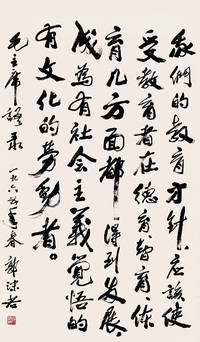 我們的教育方針，应該使
受教育者在德育、智育、体
育几方面都得到发展，
成為有社会主義觉悟的
有文化的勞動者。
毛主席語录
一九六 春 郭沫若